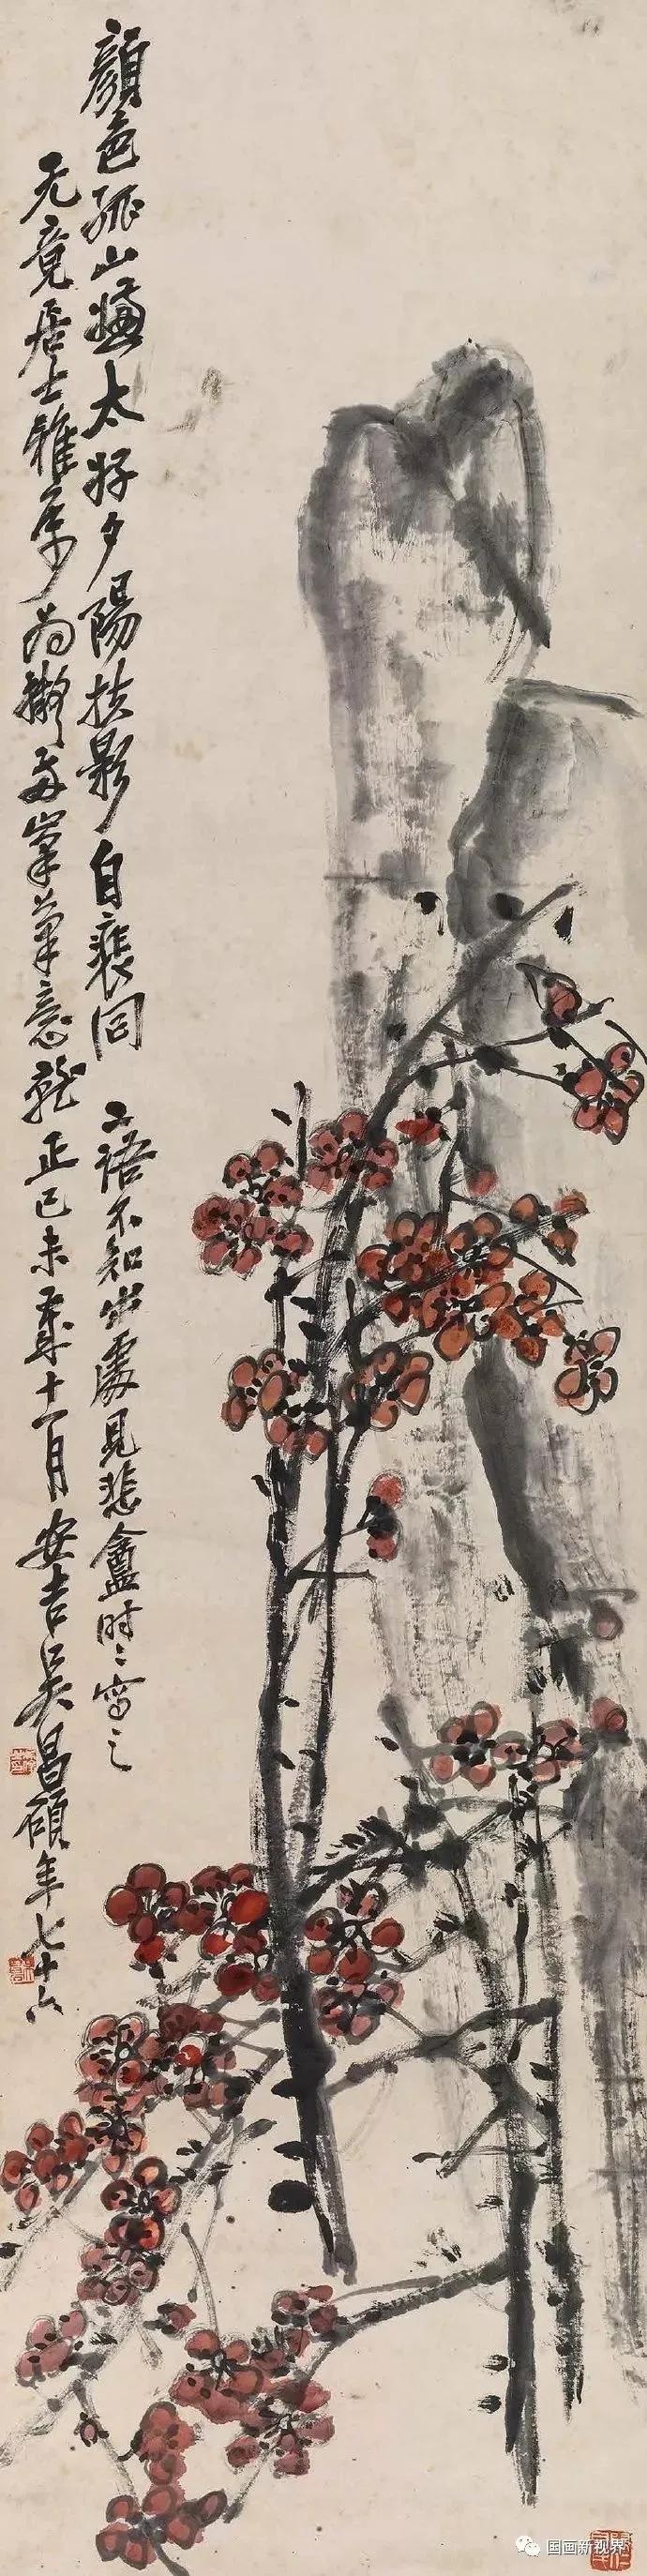 顏色孤山嫌太好夕陽扶影自裴囘
二語不知出處見悲盦时〻寫之
无竟居士雅屬為擬兩峯筆意就正己未歲十一月安吉吳昌碩年七十六
国画新视界